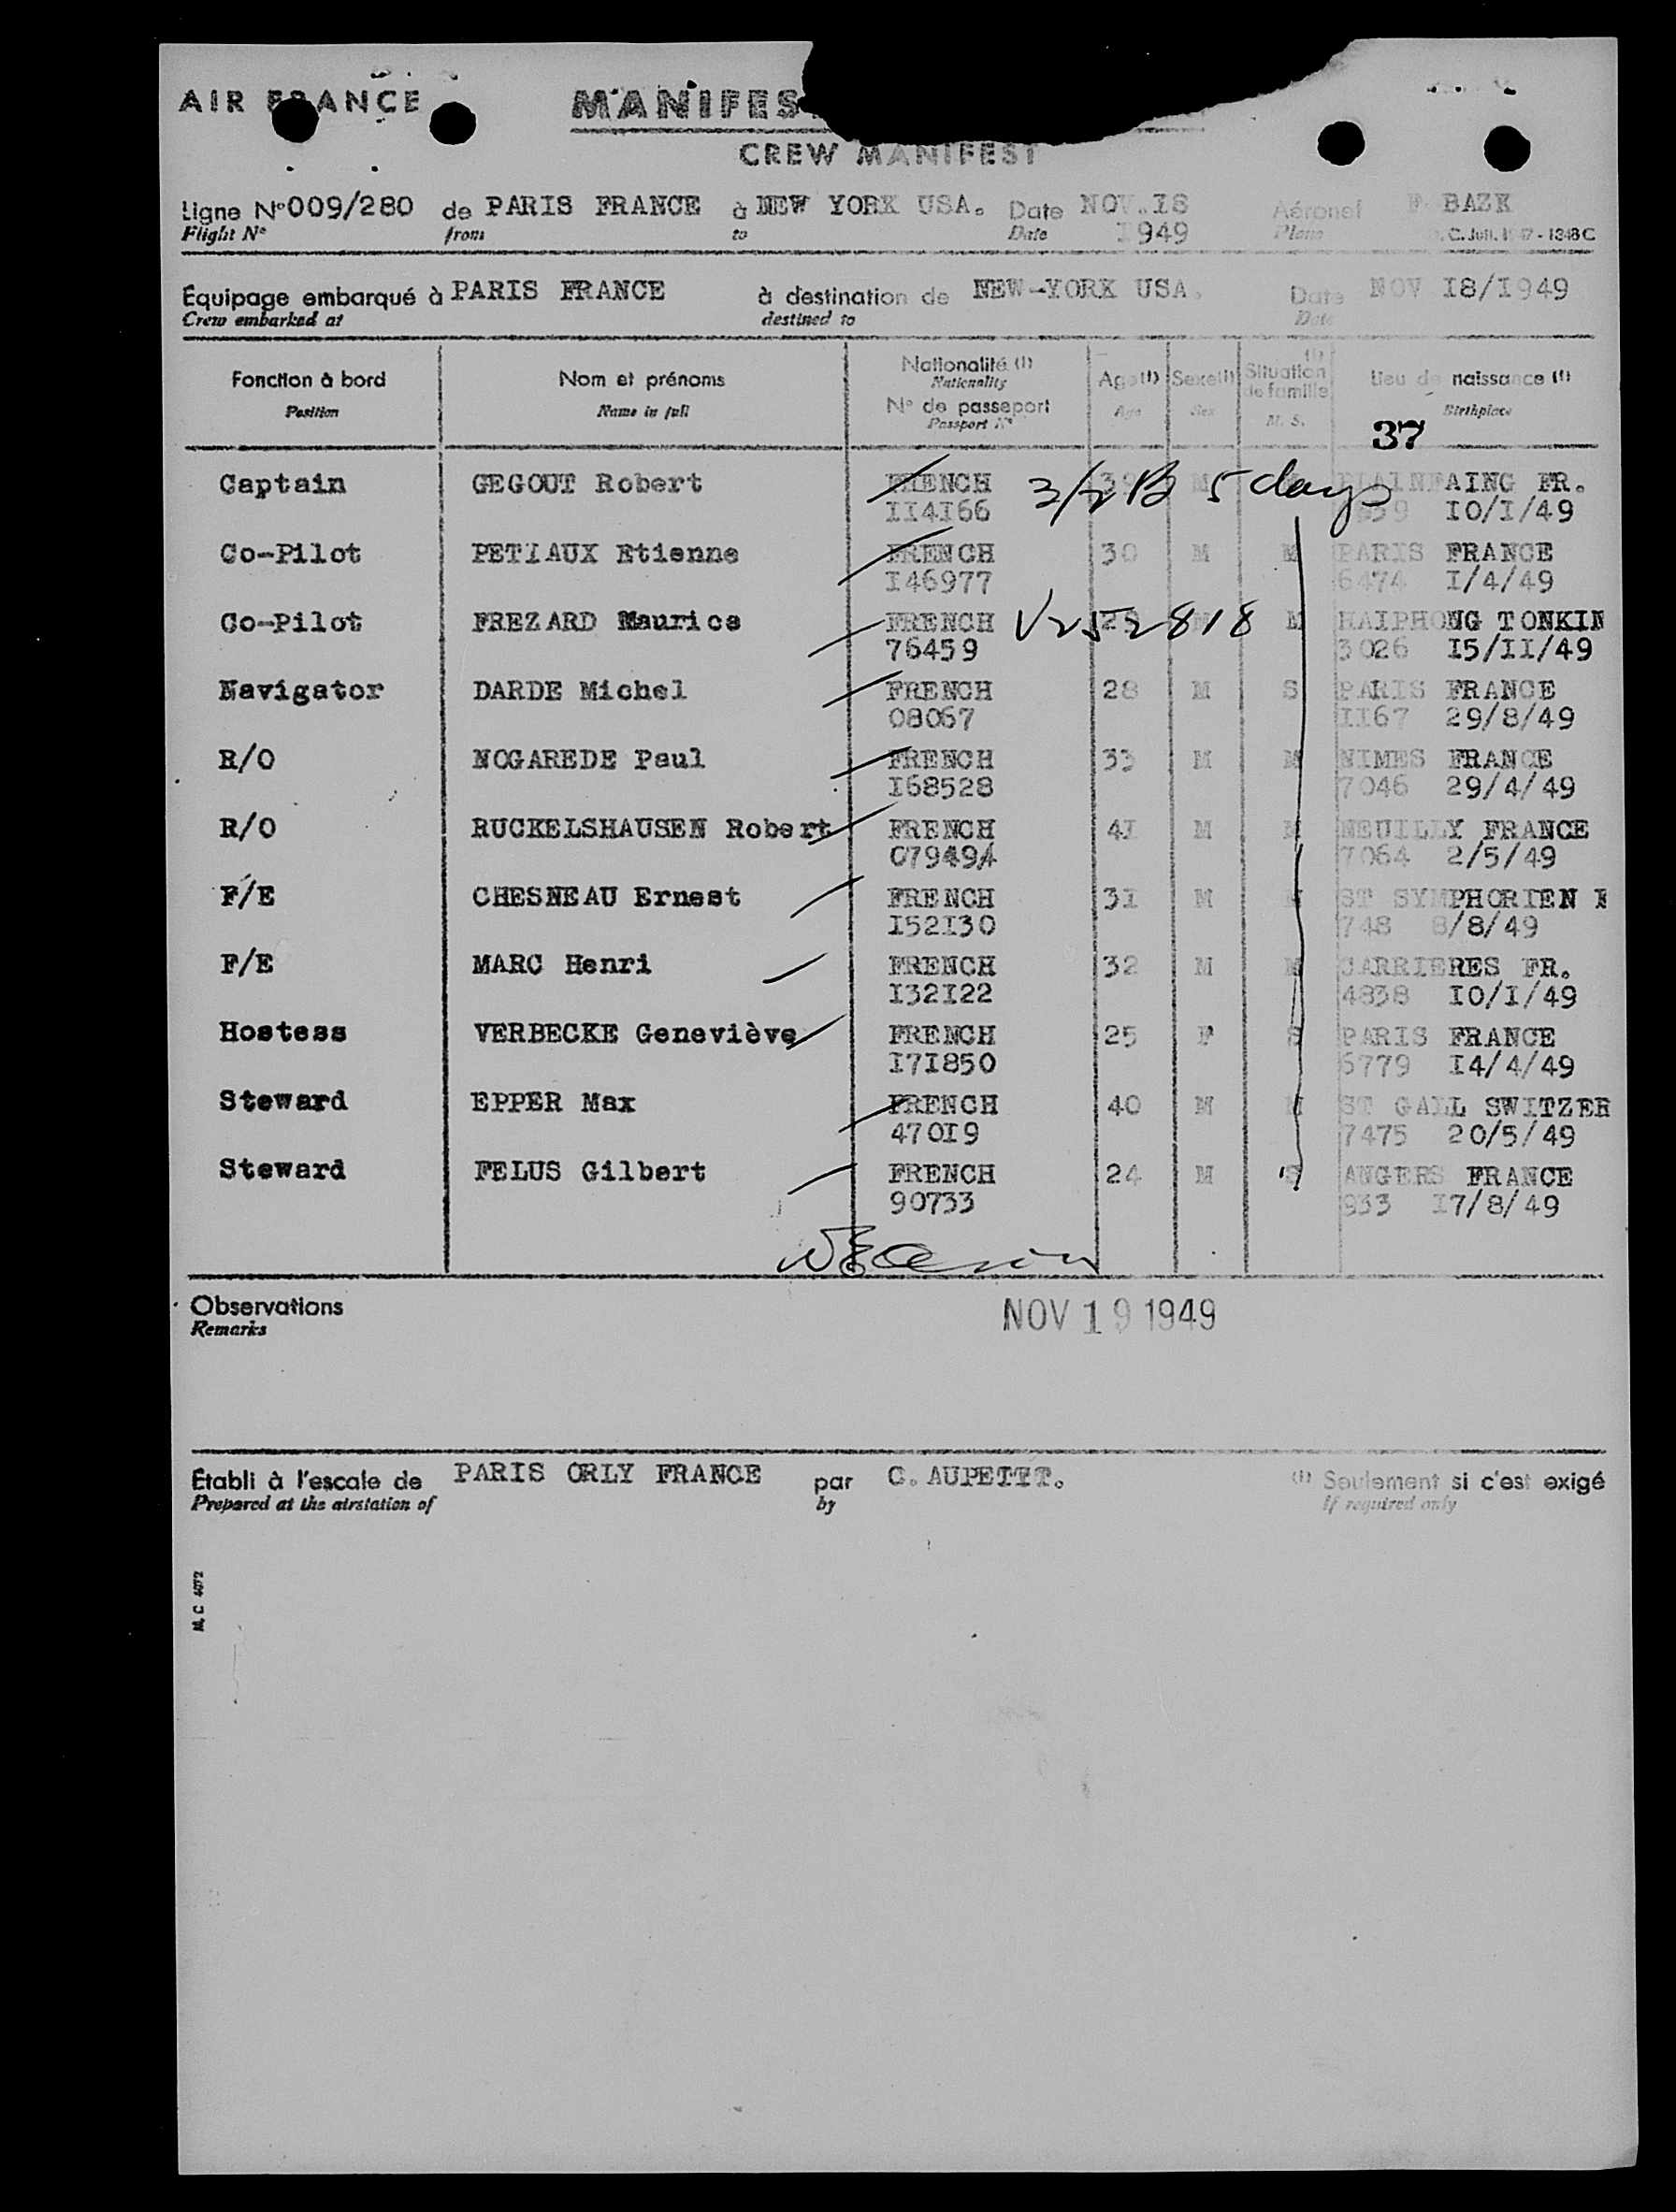 AIR FRANCE
MANIFES
CREW MANIFEST
Ligne N° 009/280 de PARIS FRANCE à NEW YORK USA. Date NOV.I8 Aéronef F-BAZK
Flight N° from to Date I949 Plane
Équipage embarqué à PARIS FRANCE à destination de NEW-YORK USA. Date NOV I8/I949
Crew embarked at destined to Date
Fonction à bord Nom et prénoms Nationalité (1) Age(1) Sexe(1) Situation de famille (1) Lieu de naissance (1)
Position Name in full Nationality Age Sex M. S. Birthplace
N° de passeport
Passport N°
37
Captain GEGOUT Robert FRENCH 39 M PLAINFAING FR.
3/2 B 5 days
II4I66 IO/I/49
Co-Pilot PETIAUX Etienne FRENCH 30 M M PARIS FRANCE
I46977 6474 I/4/49
Co-Pilot FREZARD Maurice FRENCH M HAIPHONG TONKIN
V252818
76459 3026 I5/II/49
Navigator DARDE Michel FRENCH 28 M S PARIS FRANCE
08067 II67 29/8/49
R/O NOGAREDE Paul FRENCH 33 M M NIMES FRANCE
I68528 7046 29/4/49
R/O RUCKELSHAUSEN Robert FRENCH 4I M M NEUILLY FRANCE
079494 7064 2/5/49
F/E CHESNEAU Ernest FRENCH 3I M M ST SYMPHORIEN
I52I30 748 8/8/49
F/E MARC Henri FRENCH 32 M M CARRIERES FR.
I32I22 4838 IO/I/49
Hostess VERBECKE Geneviève FRENCH 25 F S PARIS FRANCE
I7I850 6779 I4/4/49
Steward EPPER Max FRENCH 40 M M ST GALL SWITZER
470I9 7475 20/5/49
Steward FELUS Gilbert FRENCH 24 M S ANGERS FRANCE
90733 933 I7/8/49
Observations
Remarks
NOV 19 1949
Établi à l'escale de PARIS ORLY FRANCE par C. AUPETIT. (1) Seulement si c'est exigé
Prepared at the airstation of by If required only
M. C 4072